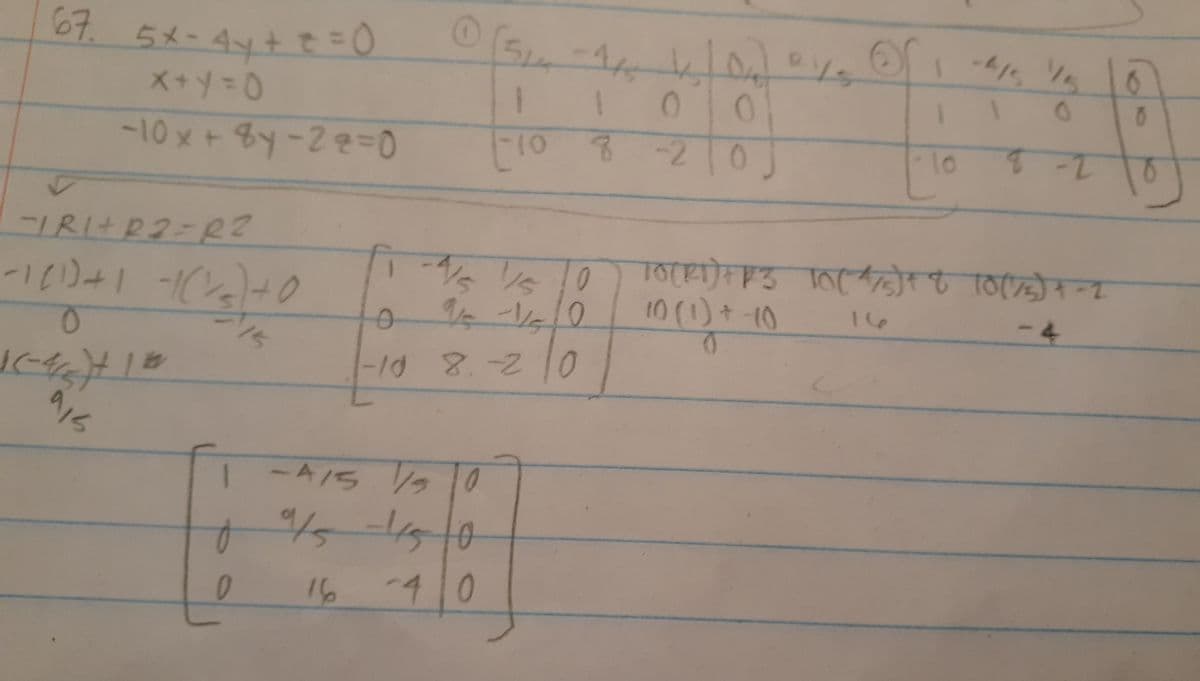 67. 5x-4y+z=0
x+y=0
-10x+8y-2z=0
① [5/5 -4/5 1/5 | 0/5] 0·1/5
1 1 0 | 0
-10 8 -2 | 0]
② [1 -4/5 1/5 | 0
1 1 0 | 0
-10 8 -2 | 0]
-1R1+R2=R2
-1(1)+1 -1(1/5)+0
0 -1/5
1(-4/5)+1
9/5
[1 -4/5 1/5 | 0
0 9/5 -1/5 | 0
-10 8. -2 | 0]
10(R1)+R3 10(4/5)+8 10(1/5)+-2
10(1)+-10 16 -4
0
[1 -4/5 1/5 | 0
0 9/5 -1/5 | 0
0 16 -4 | 0]